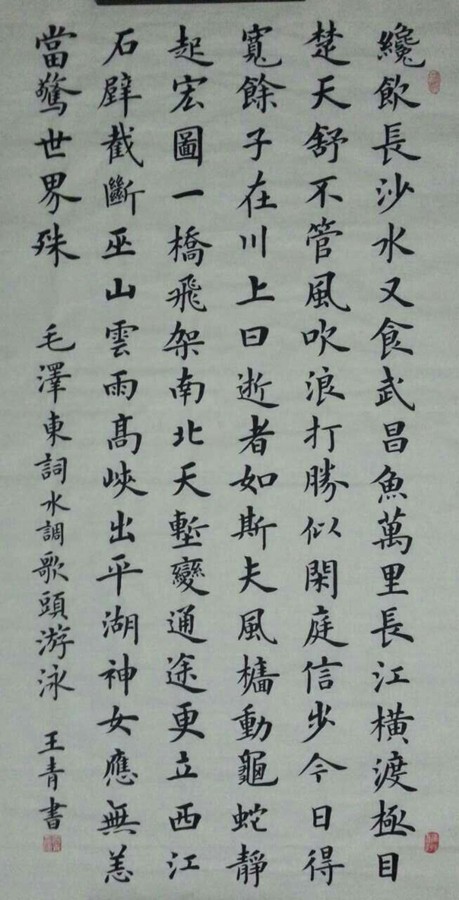 纔飲長沙水又食武昌魚萬里長江橫渡極目
楚天舒不管風吹浪打勝似閑庭信步今日得
寬餘子在川上曰逝者如斯夫風檣動龜蛇靜
起宏圖一橋飛架南北天塹變通途更立西江
石壁截斷巫山雲雨髙峽出平湖神女應無恙
當驚世界殊 毛澤東詞水調歌頭游泳 王青書